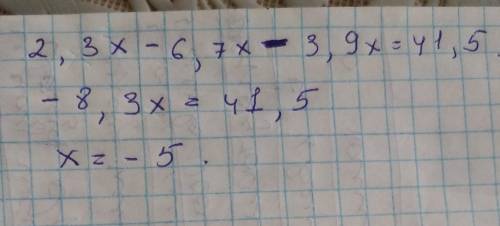 2,3x - 6,7x - 3,9x = 41,5.
- 8,3x = 41,5
x = - 5.